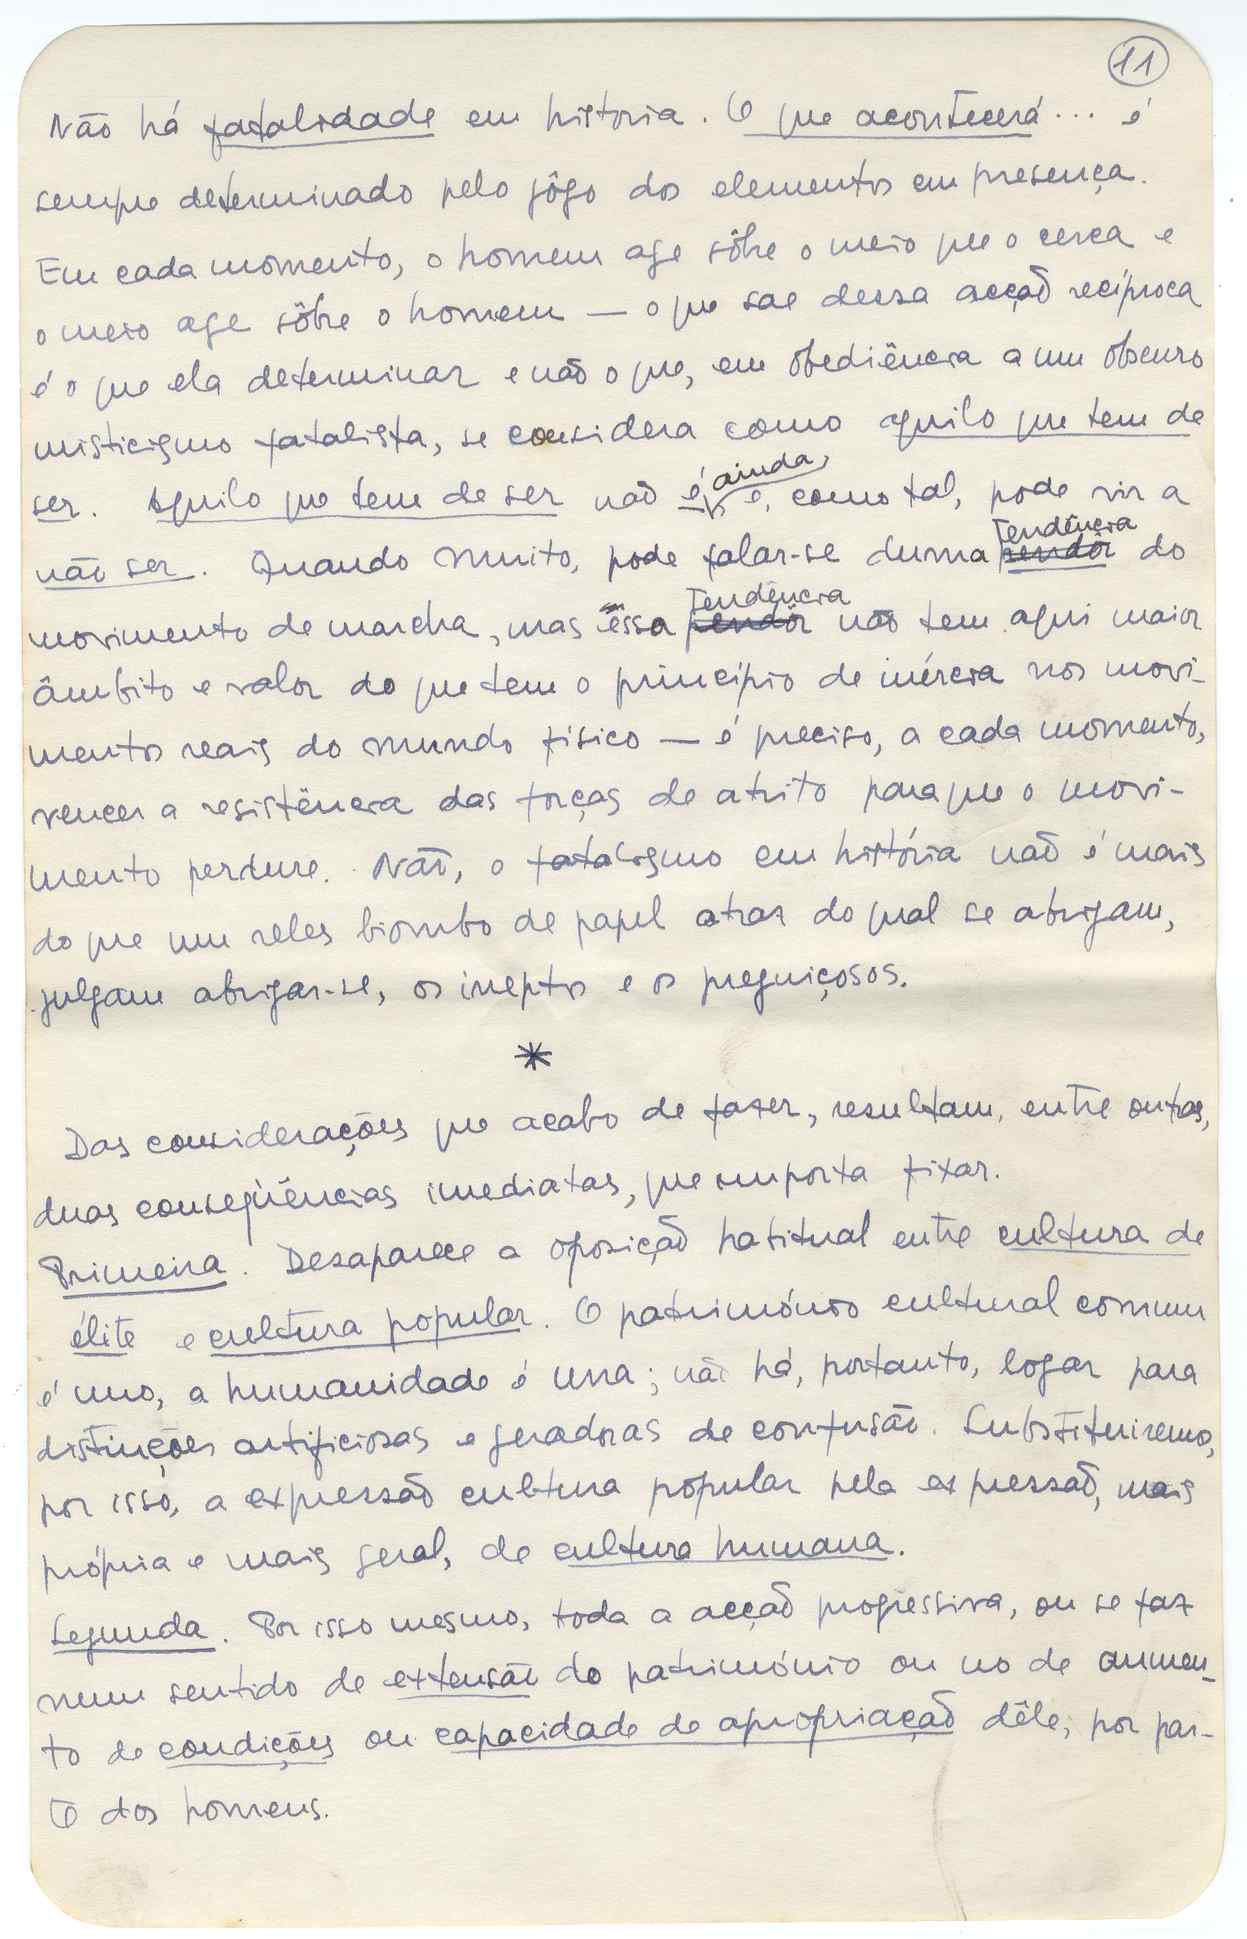 11
Não há fatalidade em história. O que acontecerá... é
sempre determinado pelo jôgo dos elementos em presença.
Em cada momento, o homem age sôbre o meio que o cerca e
o meio age sôbre o homem — o que sae dessa acção recíproca
é o que ela determinar e não o que, em obediência a um obscuro
misticismo fatalista, se considera como aquilo que tem de
ser. Aquilo que tem de ser não é ainda, e, como tal, pode vir a
não ser. Quando muito, pode falar-se duma pendôr tendência do
movimento de marcha, mas essa pendôr tendência não tem aqui maior
âmbito e valor do que tem o princípio de inércia nos movi-
mentos reais do mundo físico — é preciso, a cada momento,
vencer a resistência das forças de atrito para que o movi-
mento perdure. Não, o fatalismo em história não é mais
do que um reles biombo de papel atraz do qual se abrigam,
julgam abrigar-se, os ineptos e os preguiçosos.
*
Das considerações que acabo de fazer, resultam, entre outras,
duas conseqüências imediatas, que importa fixar.
Primeira. Desaparece a oposição habitual entre cultura de
élite e cultura popular. O património cultural comum
é uno, a humanidade é una; não há, portanto, logar para
distinções artificiosas e geradoras de confusão. Substituiremos,
por isso, a expressão cultura popular pela expressão, mais
própria e mais geral, de cultura humana.
Segunda. Por isso mesmo, toda a acção progressiva, ou se faz
num sentido de extensão do património ou no de aumen-
to de condições ou capacidade de apropriação dêle, por par-
te dos homens.